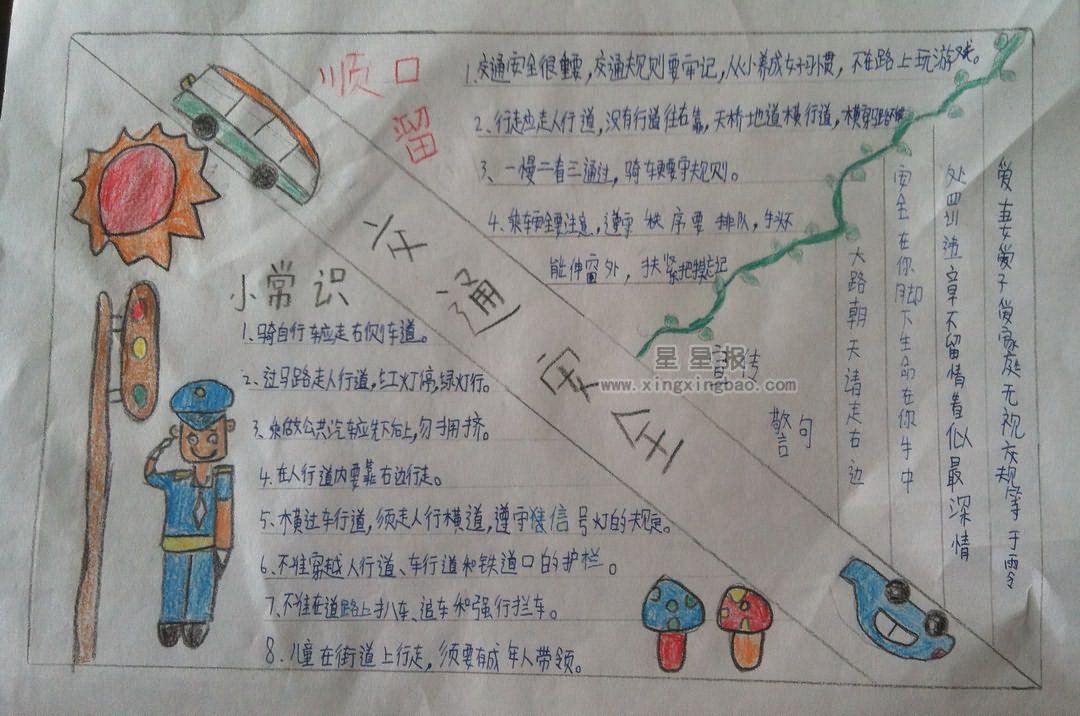 顺口
留
1.交通安全很重要,交通规则要牢记,从小养成好习惯,不在路上玩游戏。
2、行走应走人行道,没有行道往右靠,天桥地道横行道,横穿
3、一慢二看三通过,骑车更要守规则。
4、乘车安全要注意,遵守秩序要排队,手
能伸窗外,扶紧把莫忘记
交通安全
小常识
1、骑自行车应走右侧车道。
2、过马路走人行道,红灯停,绿灯行。
3、乘做公共汽车应先下后上,勿拥挤。
4、在人行道内要靠右边行走。
5、横过车行道,须走人行横道,遵守信号灯的规定。
6、不准穿越人行道、车行道和铁道口的护栏。
7、不准在道路上扒车、追车和强行拦车。
8、儿童在街道上行走,须要有成年人带领。
宣传
警句
爱妻爱子爱家庭无视交规等于零
处罚违章不留情看似最深情
安全在你脚下生命在你手中
大路朝天请走右边
星星报
www.xingxingbao.com